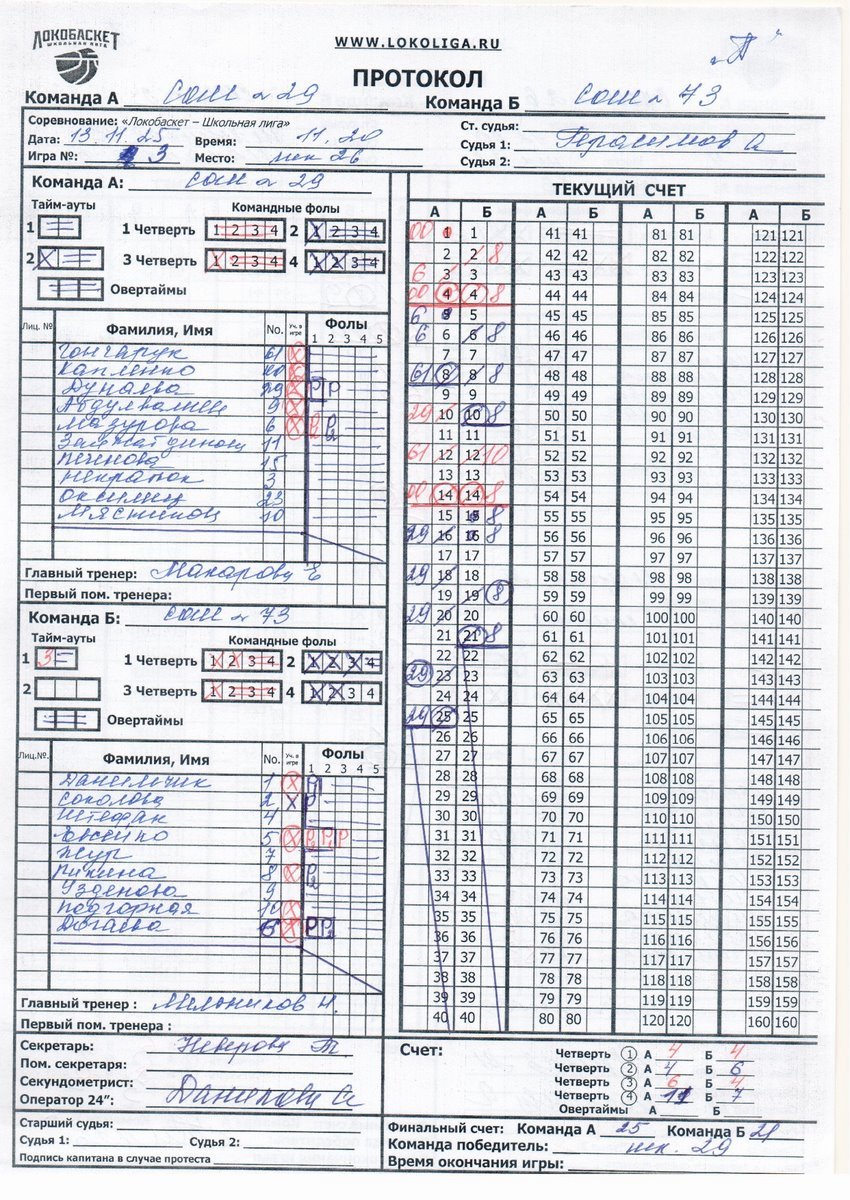 ЛОКОБАСКЕТ
ШКОЛЬНАЯ ЛИГА
WWW.LOKOLIGA.RU
„П“
ПРОТОКОЛ
Команда А СОШ № 29 Команда Б СОШ № 73
Соревнование: «Локобаскет – Школьная лига»
Дата: 13.11.25 Время: 11.20
Игра №: 3 Место: шк 26
Ст. судья:
Судья 1: Герасимов А
Судья 2:
Команда А: СОШ № 29
Тайм-ауты Командные фолы
1 1 Четверть 1 2 3 4 2 1 2 3 4
2 3 Четверть 1 2 3 4 4 1 2 3 4
Овертаймы
Лиц. № Фамилия, Имя No. Уч. в игре Фолы
1 2 3 4 5
Гончарук 61 X
Капленко 00 X
Дунаева 29 X P P
9 X
Мазурова 6 X P P2
11
Печнова 15
3
23
10
Главный тренер: Макарова Е
Первый пом. тренера:
Команда Б: СОШ № 73
Тайм-ауты Командные фолы
1 3 1 Четверть 1 2 3 4 2 1 2 3 4
2 3 Четверть 1 2 3 4 4 1 2 3 4
Овертаймы
Лиц.№. Фамилия, Имя No. Уч. в игре Фолы
1 2 3 4 5
Данильчик 1 X P
Соколова 2 X P
Штефан 4
5 X P2 P P
Жур 7
8 X P2
Узденова 9
Подгорная 10 X
15 X P P2
Главный тренер : Мельников Н.
Первый пом. тренера :
Секретарь: Неверова Т
Пом. секретаря:
Секундометрист:
Оператор 24”: Данилова
Старший судья:
Судья 1: Судья 2:
Подпись капитана в случае протеста
ТЕКУЩИЙ СЧЕТ
А Б А Б А Б А Б
00 1 1 41 41 81 81 121 121
2 2 8 42 42 82 82 122 122
6 3 3 43 43 83 83 123 123
00 4 4 8 44 44 84 84 124 124
6 5 5 45 45 85 85 125 125
6 6 6 8 46 46 86 86 126 126
7 7 47 47 87 87 127 127
61 8 8 8 48 48 88 88 128 128
9 9 49 49 89 89 129 129
29 10 10 8 50 50 90 90 130 130
11 11 51 51 91 91 131 131
61 12 12 10 52 52 92 92 132 132
13 13 53 53 93 93 133 133
00 14 14 8 54 54 94 94 134 134
15 15 8 55 55 95 95 135 135
29 16 16 8 56 56 96 96 136 136
17 17 57 57 97 97 137 137
29 18 18 58 58 98 98 138 138
19 19 8 59 59 99 99 139 139
29 20 20 60 60 100 100 140 140
21 21 8 61 61 101 101 141 141
22 22 62 62 102 102 142 142
29 23 23 63 63 103 103 143 143
24 24 64 64 104 104 144 144
29 25 25 65 65 105 105 145 145
26 26 66 66 106 106 146 146
27 27 67 67 107 107 147 147
28 28 68 68 108 108 148 148
29 29 69 69 109 109 149 149
30 30 70 70 110 110 150 150
31 31 71 71 111 111 151 151
32 32 72 72 112 112 152 152
33 33 73 73 113 113 153 153
34 34 74 74 114 114 154 154
35 35 75 75 115 115 155 155
36 36 76 76 116 116 156 156
37 37 77 77 117 117 157 157
38 38 78 78 118 118 158 158
39 39 79 79 119 119 159 159
40 40 80 80 120 120 160 160
Счет: Четверть 1 А 4 Б 4
Четверть 2 А 4 Б 6
Четверть 3 А 6 Б 4
Четверть 4 А 11 Б 7
Овертаймы А Б
Финальный счет: Команда А 25 Команда Б 21
Команда победитель: шк. 29
Время окончания игры: